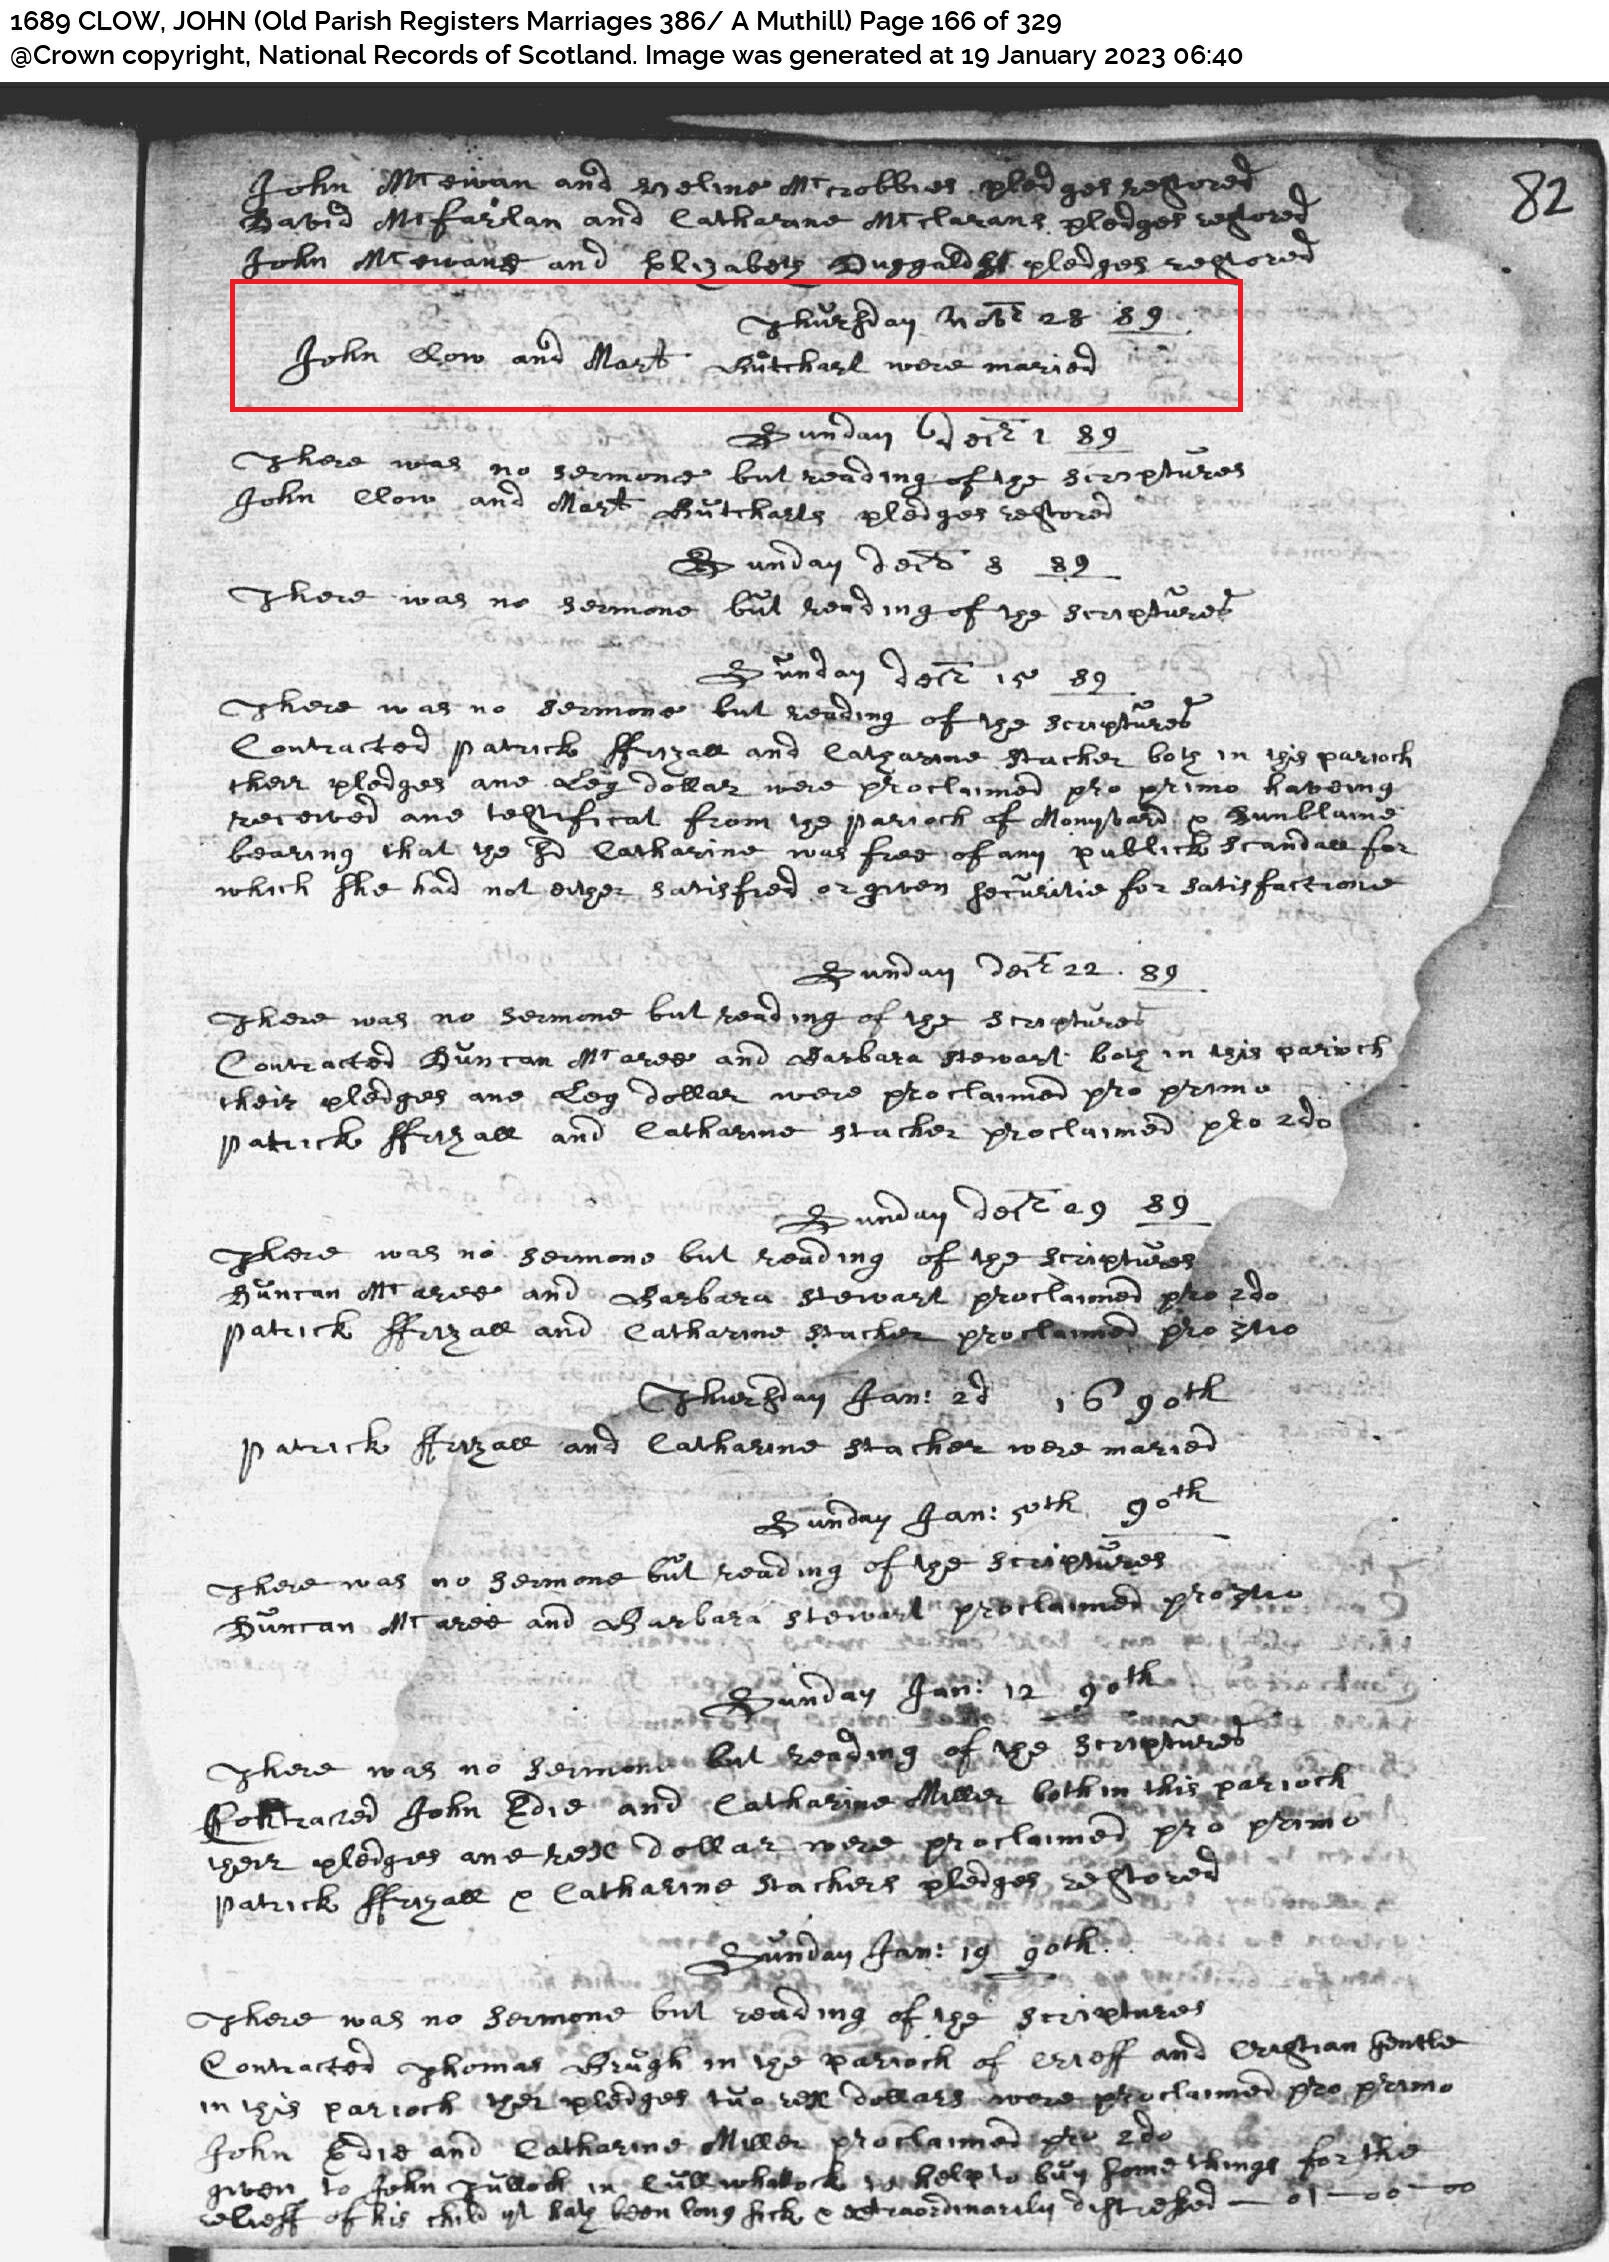 1689 CLOW, JOHN (Old Parish Registers Marriages 386/ A Muthill) Page 166 of 329
@Crown copyright, National Records of Scotland. Image was generated at 19 January 2023 06:40
82
John Mc ewan and Mc robbies pledges restored
David Mcfarlan and Catharine Mcclarans pledges restored
John Mc ewans and Elizabeth pledges restored
Thursday Nobr 28 89
John Clow and Mart Butchart were maried
Sunday decr 1 89
There was no sermone but reading of the scriptures
John Clow and Mart Butcharts pledges restored
Sunday decr 8 89
There was no sermone but reading of the scriptures
Sunday decr 15 89
There was no sermone but reading of the scriptures
Contracted Patrick ffrizall and Catharine Stacher both in this parioch
their pledges ane Leg dollar were proclaimed pro primo haveing
received ane testificat from the parioch of Monyvard & Dunblaine
bearing that the sd Catharine was free of any publick scandall for
which she had not either satisfied or given securitie for satisfactione
Sunday decr 22 89
There was no sermone but reading of the scriptures
Contracted Duncan Mc aree and Barbara Stewart both in this parioch
their pledges ane Leg dollar were proclaimed pro primo
Patrick ffrizall and Catharine Stacher proclaimed pro 2do
Sunday decr 29 89
There was no sermone but reading of the scriptures
Duncan Mc aree and Barbara Stewart proclaimed pro 2do
Patrick ffrizall and Catharine Stacher proclaimed pro 3tio
Thursday Jan: 2d 1690th
Patrick ffrizall and Catharine Stacher were maried
Sunday Jan: 5th 90th
There was no sermone but reading of the scriptures
Duncan Mc aree and Barbara Stewart proclaimed pro 3tio
Sunday Jan: 12 90th
There was no sermone but reading of the scriptures
Contracted John Edie and Catharine Miller both in this parioch
their pledges ane rex dollar were proclaimed pro primo
Patrick ffrizall & Catharine Stachers pledges restored
Sunday Jan: 19 90th
There was no sermone but reading of the scriptures
Contracted Thomas Brugh in the parioch of Crieff and Cristian Gentle
in this parioch ther pledges tuo rex dollars were proclaimed pro primo
John Edie and Catharine Miller proclaimed pro 2do
given to John in to help to buy some things for the
relieff of his child yt hath been long sick & extraordinarily distressed — 01—00—00